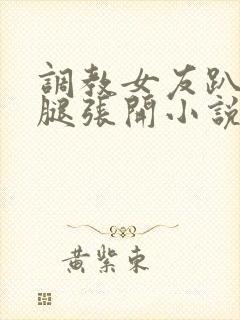 調教女友趴
腿張開小說
黃紫東